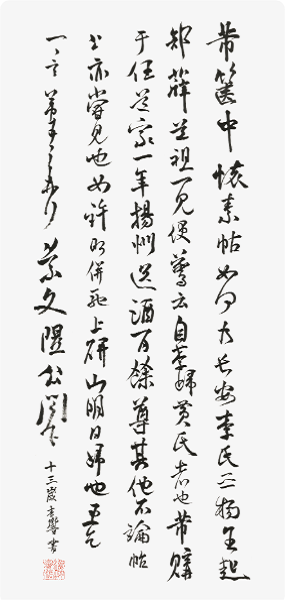 芾篋中懷素帖如何乃長安李氏之物王起
部薛道祖一見便驚云自李歸黃氏者也芾購
于任道家一年揚州送酒百餘尊其他不論帖
公亦嘗見也如許即併馳上研山明日歸也更乞
一言芾頓首再拜景文隰公閣下
十三歲